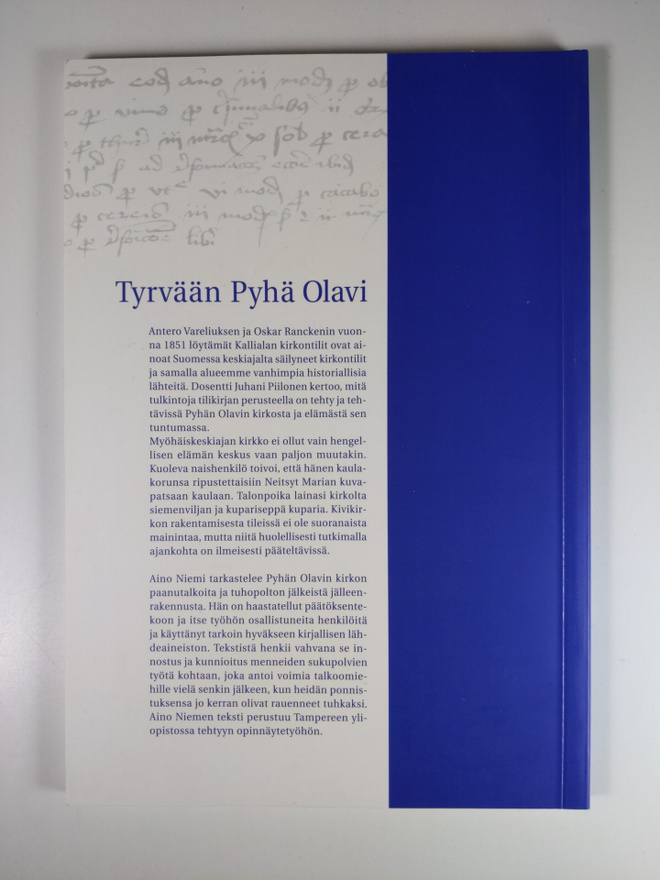 Tyrvään Pyhä Olavi
Antero Vareliuksen ja Oskar Ranckenin vuon-
na 1851 löytämät Kallialan kirkontilit ovat ai-
noat Suomessa keskiajalta säilyneet kirkontilit
ja samalla alueemme vanhimpia historiallisia
lähteitä. Dosentti Juhani Piilonen kertoo, mitä
tulkintoja tilikirjan perusteella on tehty ja teh-
tävissä Pyhän Olavin kirkosta ja elämästä sen
tuntumassa.
Myöhäiskeskiajan kirkko ei ollut vain hengel-
lisen elämän keskus vaan paljon muutakin.
Kuoleva naishenkilö toivoi, että hänen kaula-
korunsa ripustettaisiin Neitsyt Marian kuva-
patsaan kaulaan. Talonpoika lainasi kirkolta
siemenviljan ja kupariseppä kuparia. Kivikir-
kon rakentamisesta tileissä ei ole suoranaista
mainintaa, mutta niitä huolellisesti tutkimalla
ajankohta on ilmeisesti pääteltävissä.
Aino Niemi tarkastelee Pyhän Olavin kirkon
paanutalkoita ja tuhopolton jälkeistä jälleen-
rakennusta. Hän on haastatellut päätöksente-
koon ja itse työhön osallistuneita henkilöitä
ja käyttänyt tarkoin hyväkseen kirjallisen läh-
deaineiston. Tekstistä henkii vahvana se in-
nostus ja kunnioitus menneiden sukupolvien
työtä kohtaan, joka antoi voimia talkoomie-
hille vielä senkin jälkeen, kun heidän ponnis-
tuksensa jo kerran olivat rauenneet tuhkaksi.
Aino Niemen teksti perustuu Tampereen yli-
opistossa tehtyyn opinnäytetyöhön.